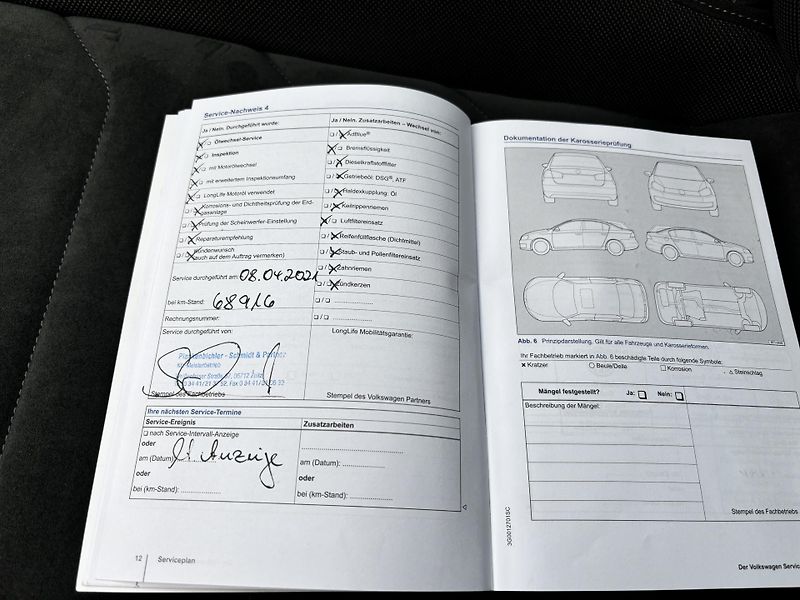 Service-Nachweis 4
Ja / Nein. Durchgeführt wurde:
Ölwechsel-Service
Inspektion
mit Motorölwechsel
mit erweitertem Inspektionsumfang
LongLife Motoröl verwendet
Korrosions- und Dichtheitsprüfung der Erd-
gasanlage
Prüfung der Scheinwerfer-Einstellung
Reparaturempfehlung
Kundenwunsch
(auch auf dem Auftrag vermerken)
Service durchgeführt am: 08.04.2021
bei km-Stand: 68916
Rechnungsnummer:
Service durchgeführt von:
Schmidt & Partner
Stempel des Fachbetriebs
Ja / Nein. Zusatzarbeiten – Wechsel von:
AdBlue®
Bremsflüssigkeit
Dieselkraftstofffilter
Getriebeöl: DSG®, ATF
Haldexkupplung: Öl
Keilrippenriemen
Luftfiltereinsatz
Reifenfüllflasche (Dichtmittel)
Staub- und Pollenfiltereinsatz
Zahnriemen
Zündkerzen
LongLife Mobilitätsgarantie:
Stempel des Volkswagen Partners
Ihre nächsten Service-Termine
Service-Ereignis
nach Service-Intervall-Anzeige
oder
am (Datum): lt. Anzeige
oder
bei (km-Stand):
Zusatzarbeiten
am (Datum):
oder
bei (km-Stand):
12 Serviceplan
Dokumentation der Karosserieprüfung
Abb. 6 Prinzipdarstellung. Gilt für alle Fahrzeuge und Karosserieformen.
Ihr Fachbetrieb markiert in Abb. 6 beschädigte Teile durch folgende Symbole:
× Kratzer ○ Beule/Delle □ Korrosion △ Steinschlag
Mängel festgestellt? Ja: Nein:
Beschreibung der Mängel:
Stempel des Fachbetriebs
3G0012701SC
Der Volkswagen Service